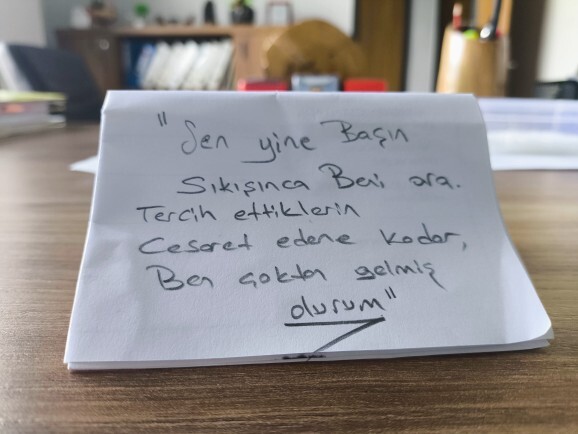 "Sen yine Başın
Sıkışınca Beni ara.
Tercih ettiklerin
Cesaret edene kadar,
Ben çoktan gelmiş
olurum"